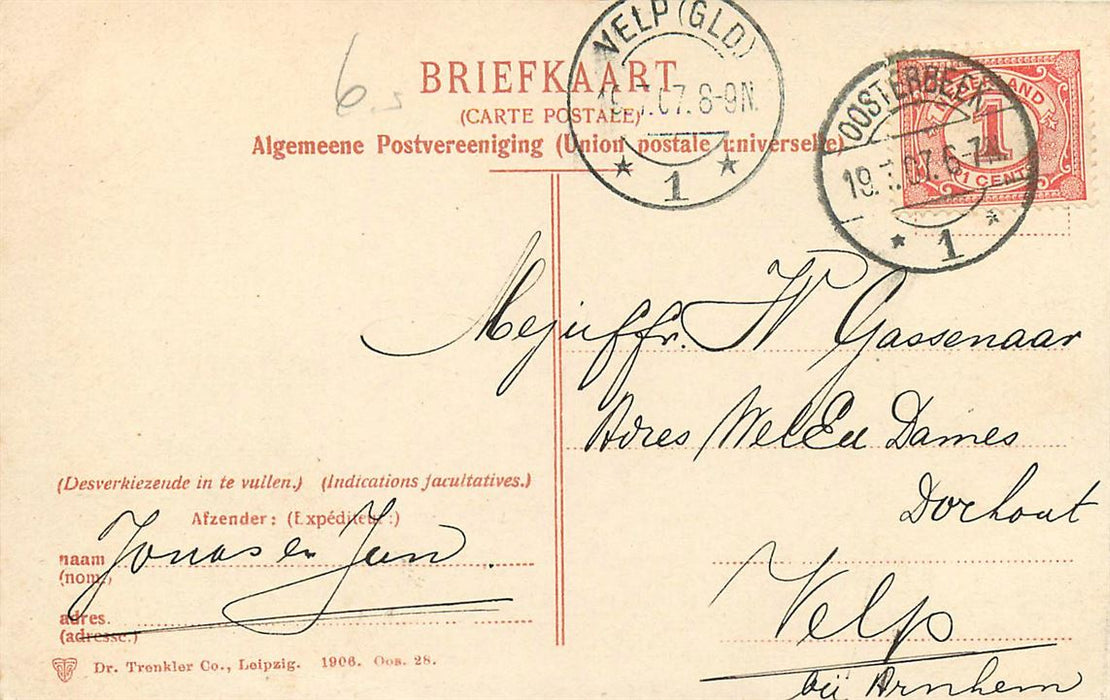 VELP (GLD)
19.7.07.8-9N.
1
OOSTERBEEK
19.7.07.6-7N.
1
NEDERLAND
1
1 CENT
6
BRIEFKAART
(CARTE POSTALE)
Algemeene Postvereeniging (Union postale universelle)
Mejuffr. W Gassenaar
Adres WelEd Dames
Dorhout
Velp
bij Arnhem
(Desverkiezende in te vullen.) (Indications facultatives.)
Afzender: (Expéditeur:)
naam Jonas en Jan.
(nom.)
adres.
(adresse.)
Dr. Trenkler Co., Leipzig. 1906. Oos. 28.